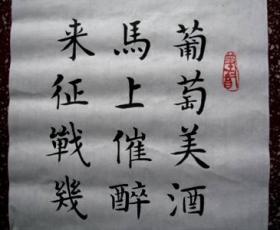 葡萄美酒
馬上催醉
来征戰幾